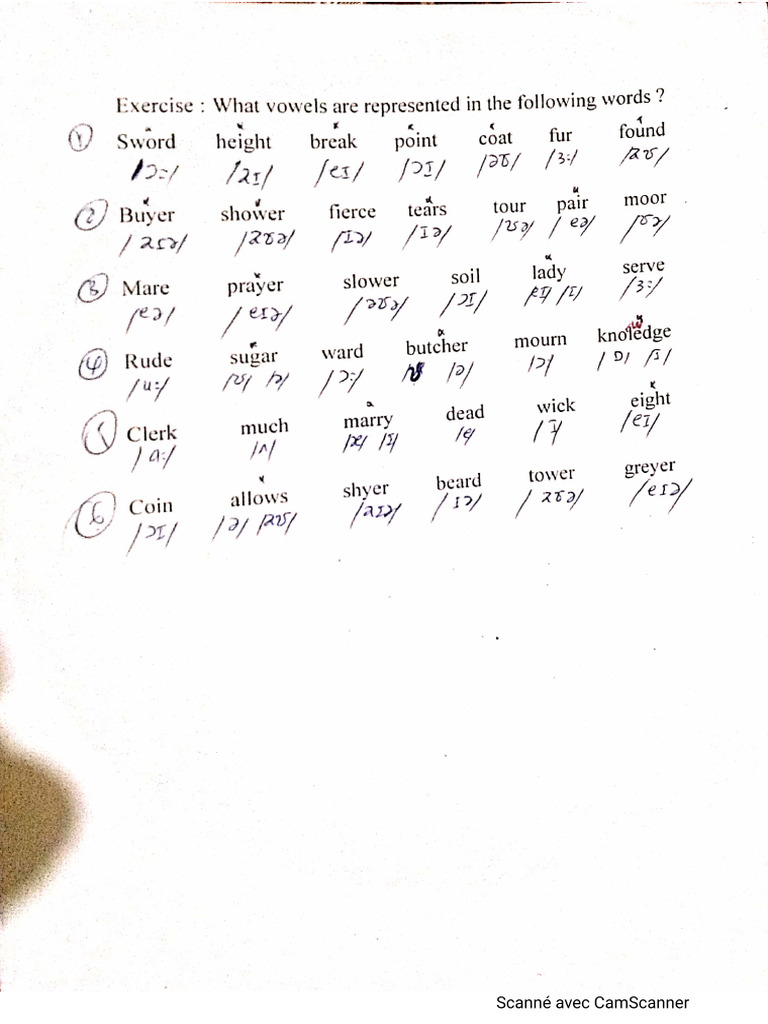 Exercise : What vowels are represented in the following words ?
① Sword height break point coat fur found
/ɔ:/ /aɪ/ /eɪ/ /ɔɪ/ /əʊ/ /ɜ:/ /aʊ/
② Buyer shower fierce tears tour pair moor
/aɪə/ /aʊə/ /ɪə/ /ɪə/ /ʊə/ /eə/ /ʊə/
③ Mare prayer slower soil lady serve
/eə/ /eɪə/ /əʊə/ /ɔɪ/ /eɪ/ /ɪ/ /ɜ:/
④ Rude sugar ward butcher mourn knowledge
/u:/ /ʊ/ /ə/ /ɔ:/ /ʊ/ /ə/ /ɔ/ /ɒ/ /ɪ/
⑤ Clerk much marry dead wick eight
/ɑ:/ /ʌ/ /æ/ /ɪ/ /e/ /ɪ/ /eɪ/
⑥ Coin allows shyer beard tower greyer
/ɔɪ/ /ə/ /aʊ/ /aɪə/ /ɪə/ /aʊə/ /eɪə/
Scanné avec CamScanner